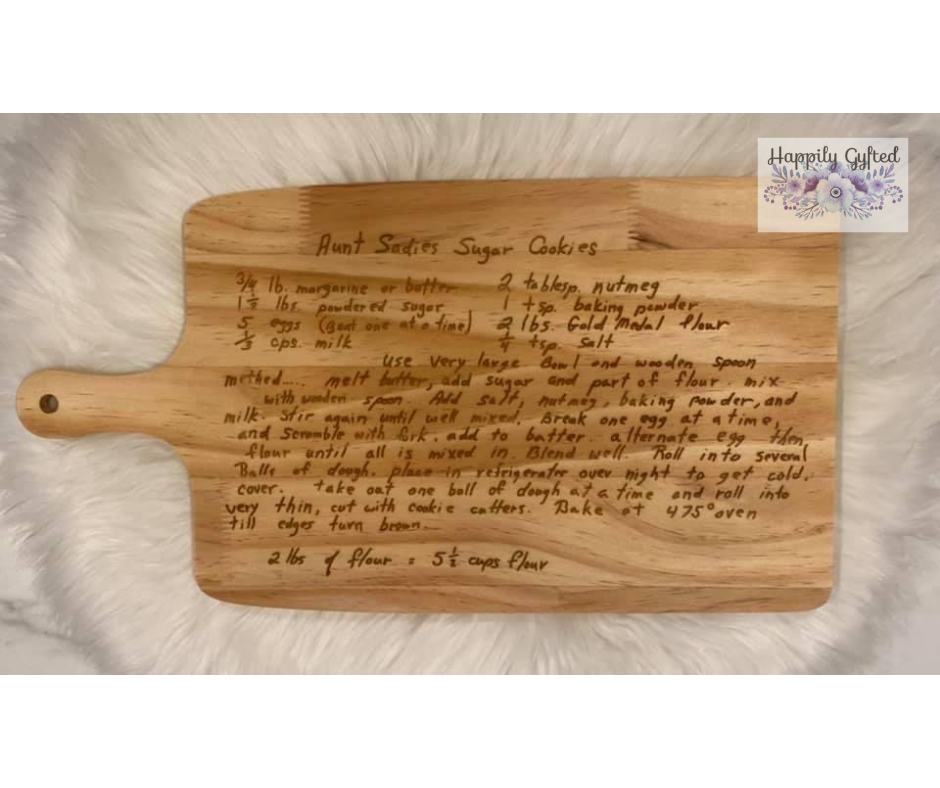 Happily Gyfted
Aunt Sadies Sugar Cookies
3/4 lb. margarine or butter
1 1/2 lbs. powdered sugar
5 eggs (Beat one at a time)
1/3 cps. milk
2 tablesp. nutmeg
1 tsp. baking powder
2 lbs. Gold Medal flour
1/4 tsp. Salt
Use very large Bowl and wooden spoon
method.... melt butter, add sugar and part of flour. mix
with wooden spoon. Add salt, nutmeg, baking powder, and
milk. Stir again until well mixed. Break one egg at a time,
and scramble with fork. add to batter. alternate egg then
flour until all is mixed in. Blend well. Roll into several
Balls of dough. place in refrigerater over night to get cold.
cover. take out one ball of dough at a time and roll into
very thin, cut with cookie cutters. Bake at 475° oven
till edges turn brown.
2 lbs of flour = 5 1/2 cups flour